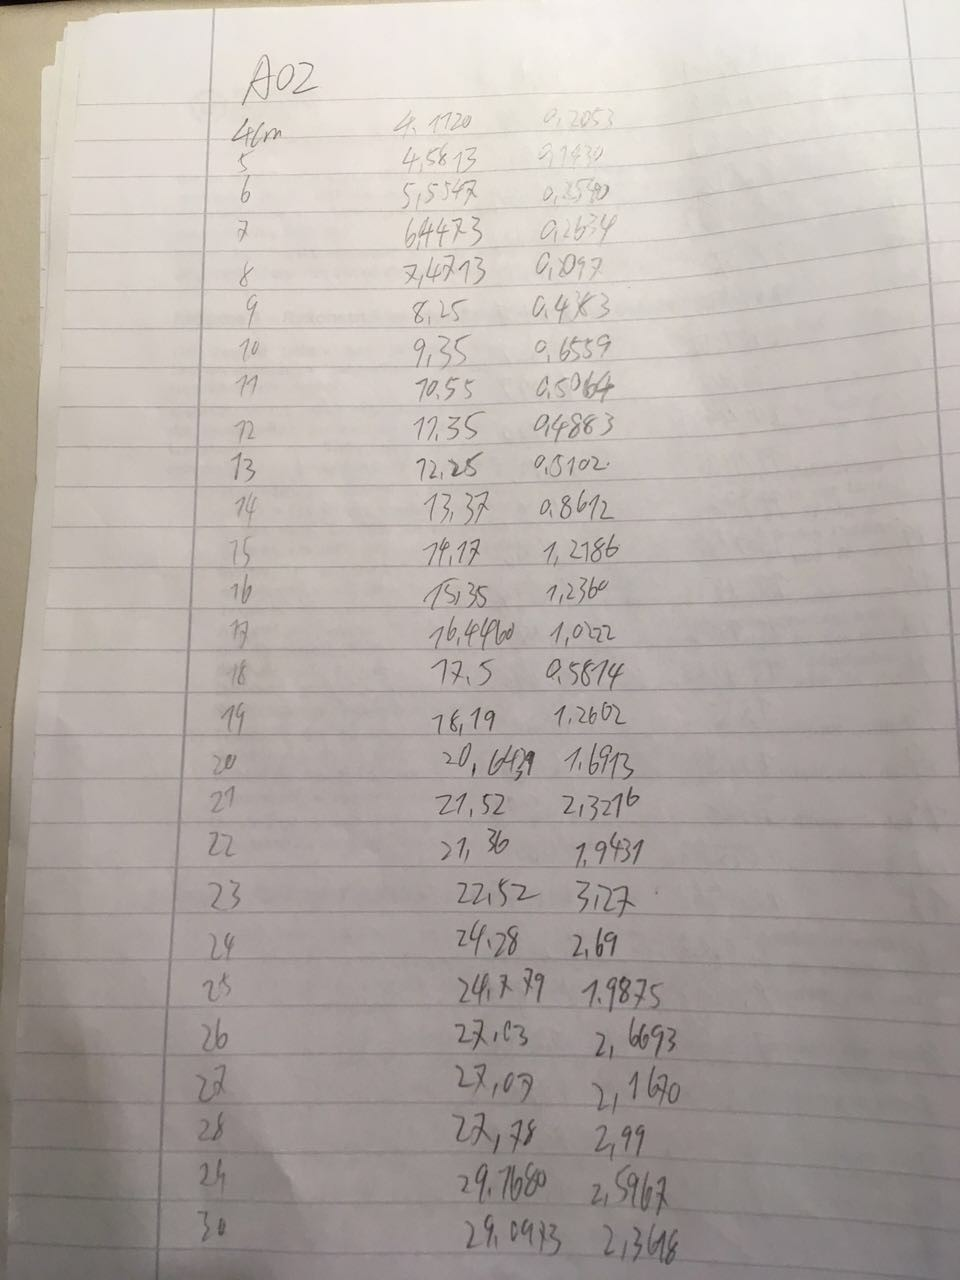 A02
4cm 4.1120 0,2053
5 4,5813 0,1430
6 5,5547 0,2540
7 6,4473 0,2634
8 7,4713 0,2097
9 8,25 0,4383
10 9,35 0,6559
11 10,55 0,5064
12 11,35 0,4883
13 12,25 0,5102
14 13,37 0,8612
15 14,17 1,2186
16 15,35 1,2360
17 16,4460 1,0222
18 17,5 0,5814
19 18,19 1,2602
20 1.6913
21 21,52 2,3216
22 21,36 1,9431
23 22,52 3,27
24 24,28 2,69
25 24,779 1.9875
26 27,03 2,6693
27 27,07 2,1670
28 27,78 2,99
29 29,7680 2,5967
30 29,0973 2,3618